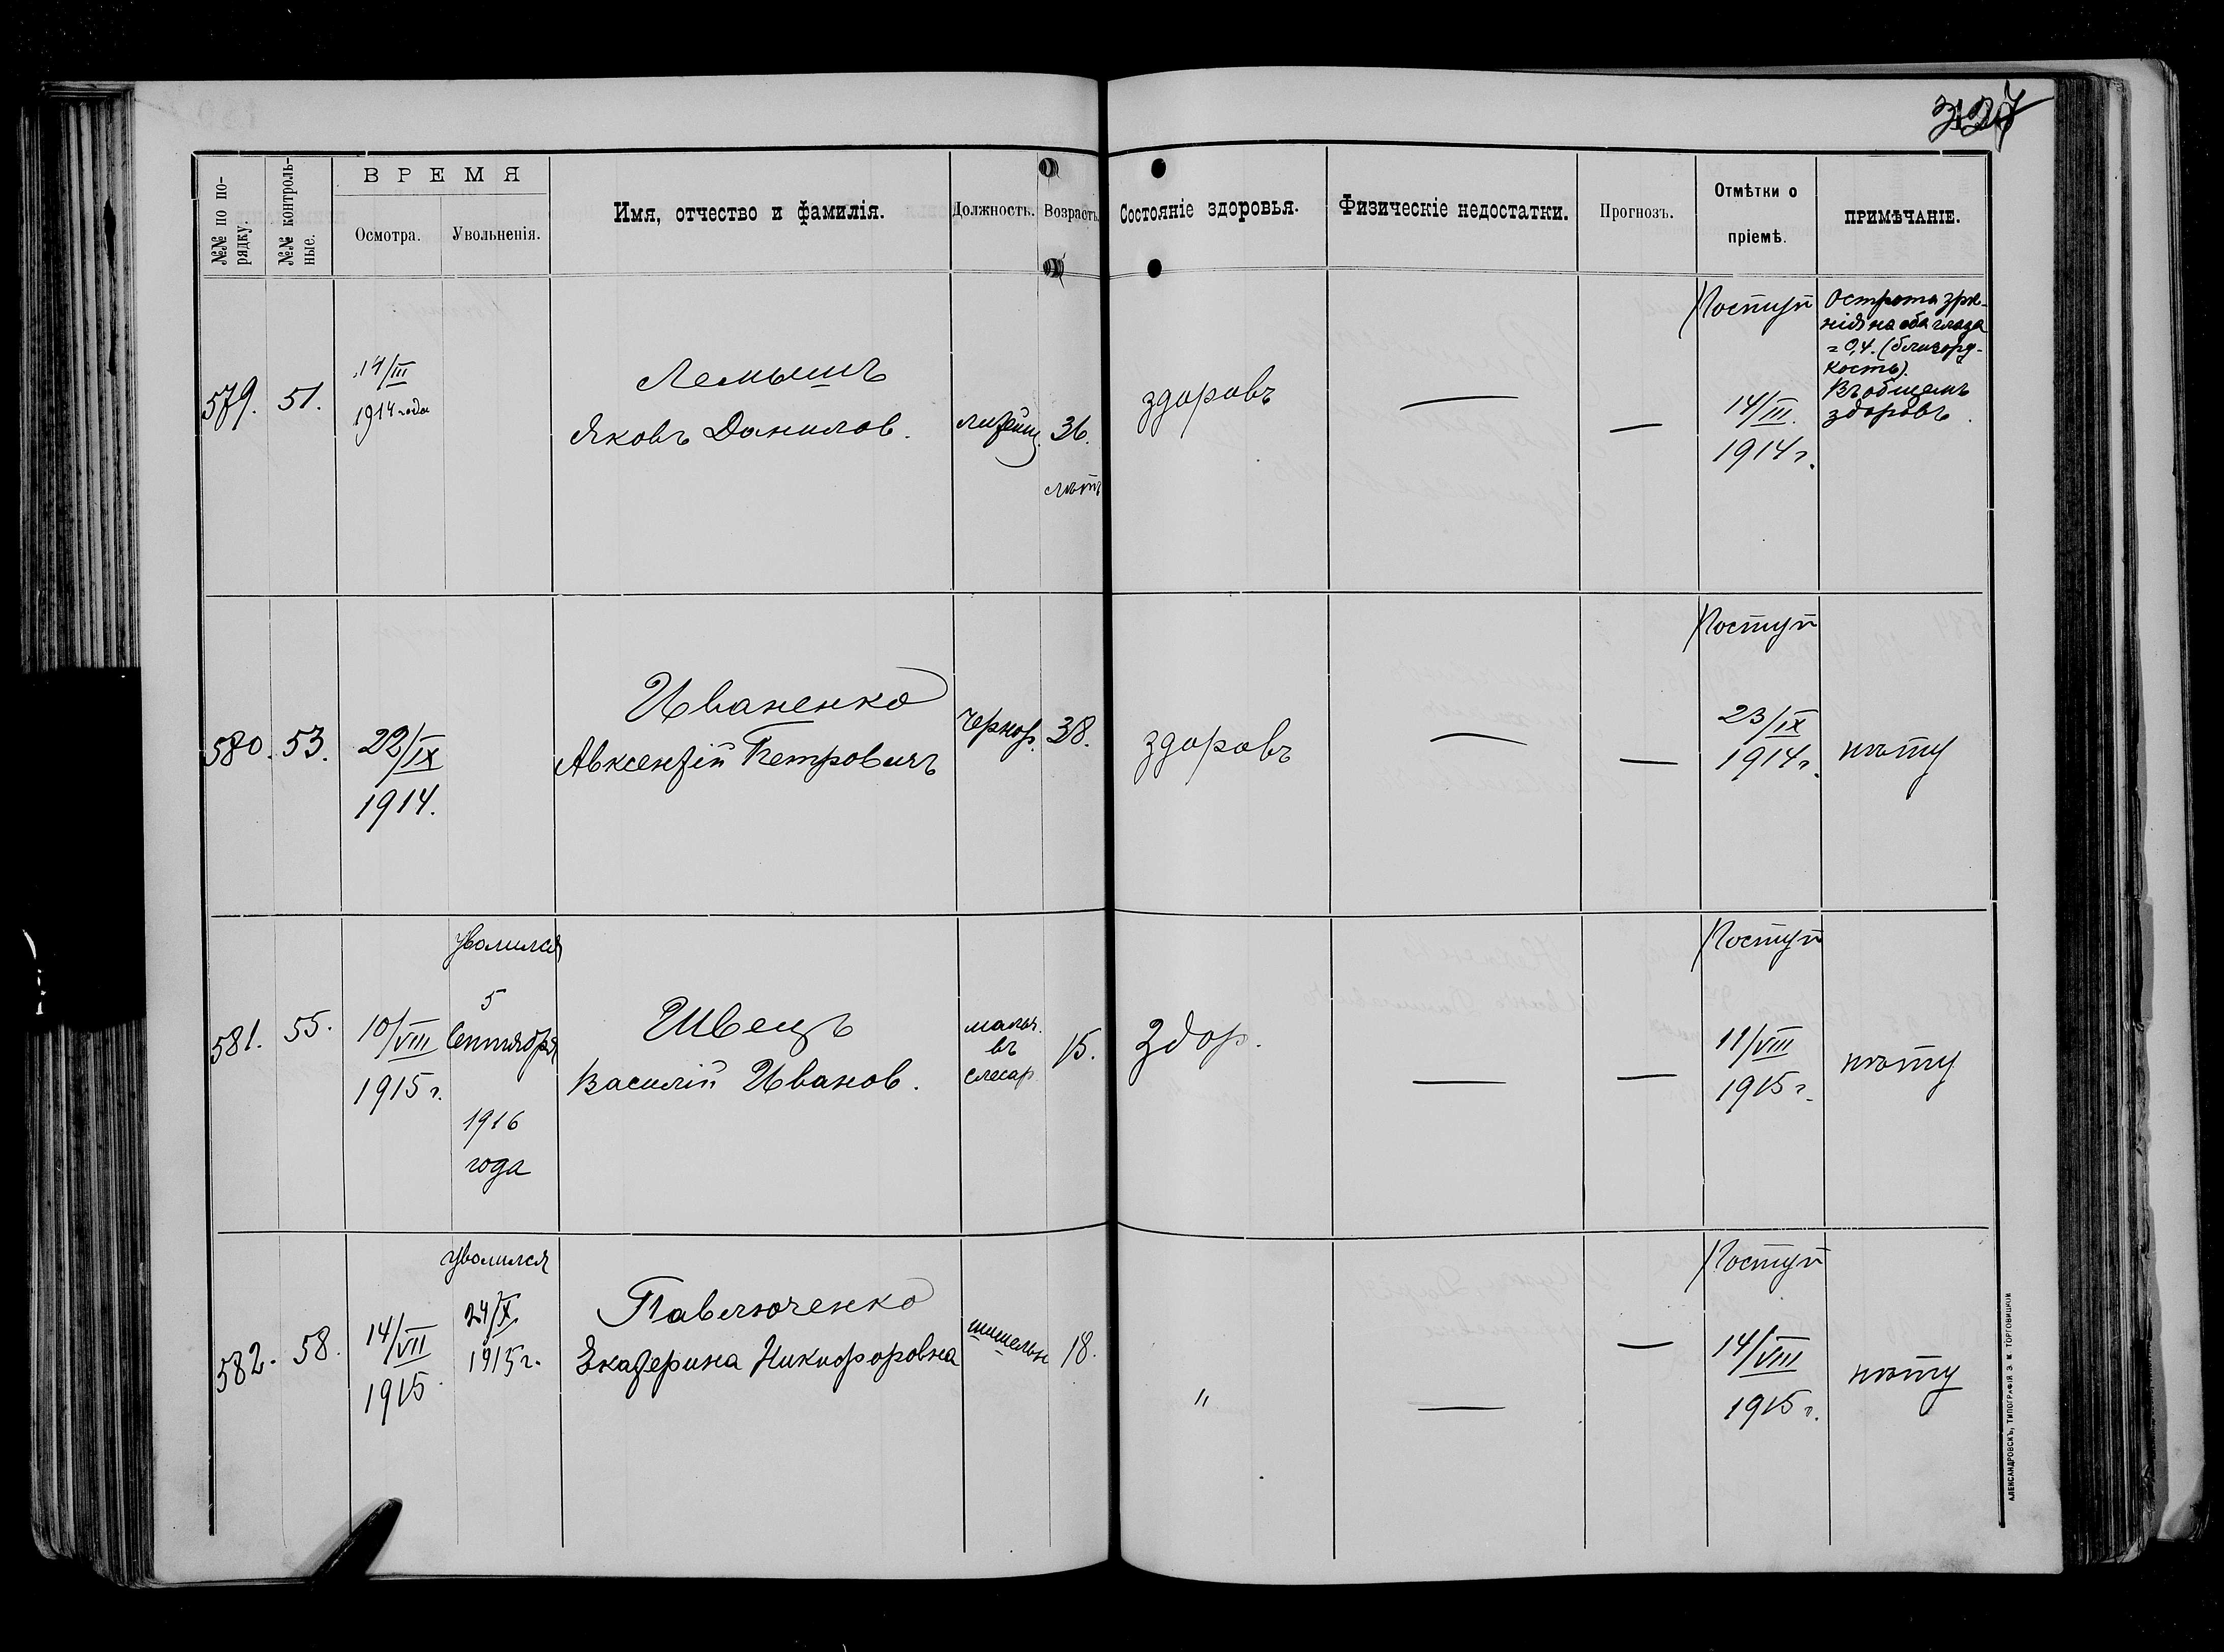 327
№№ по по-
рядку.
№№ контроль-
ные.
ВРЕМЯ
Осмотра.
Увольненія.
Имя, отчество и фамилія.
Должность.
Возрастъ.
Состояніе здоровья.
Физическіе недостатки.
Прогнозъ.
Отмѣтки о
пріемѣ.
ПРИМѢЧАНІЕ.
579.
51.
14/III
1914 года
Лемышъ
Яковъ Данилов.
литейщ.
36.
лѣтъ
здоровъ
—
—
Поступ
14/III.
1914 г.
Острота зрѣ-
нія на оба глаза
= 0,4. (близору-
кость).
Въ общемъ
здоровъ.
580.
53.
22/IX
1914.
Иваненко
Авксентій Петровичъ
чернор.
38.
здоровъ
—
—
Поступ
23/IX
1914 г.
нѣту
581.
55.
10/VIII
1915 г.
уволился
5
Сентября
1916
года
Швецъ
Василій Иванов.
мальч.
въ
слесар.
15.
Здор.
—
—
Поступ
11/VIII
1915 г.
нѣту
582.
58.
14/VII
1915.
уволился
24/X
1915 г.
Павлюченко
Екатерина Никифоровна
шишельн
18.
"
—
—
Поступ
14/VIII
1915 г.
нѣту
АЛЕКСАНДРОВСКЪ, ТИПОГРАФІЯ Э. М. ТОРГОВИЦКОЙ